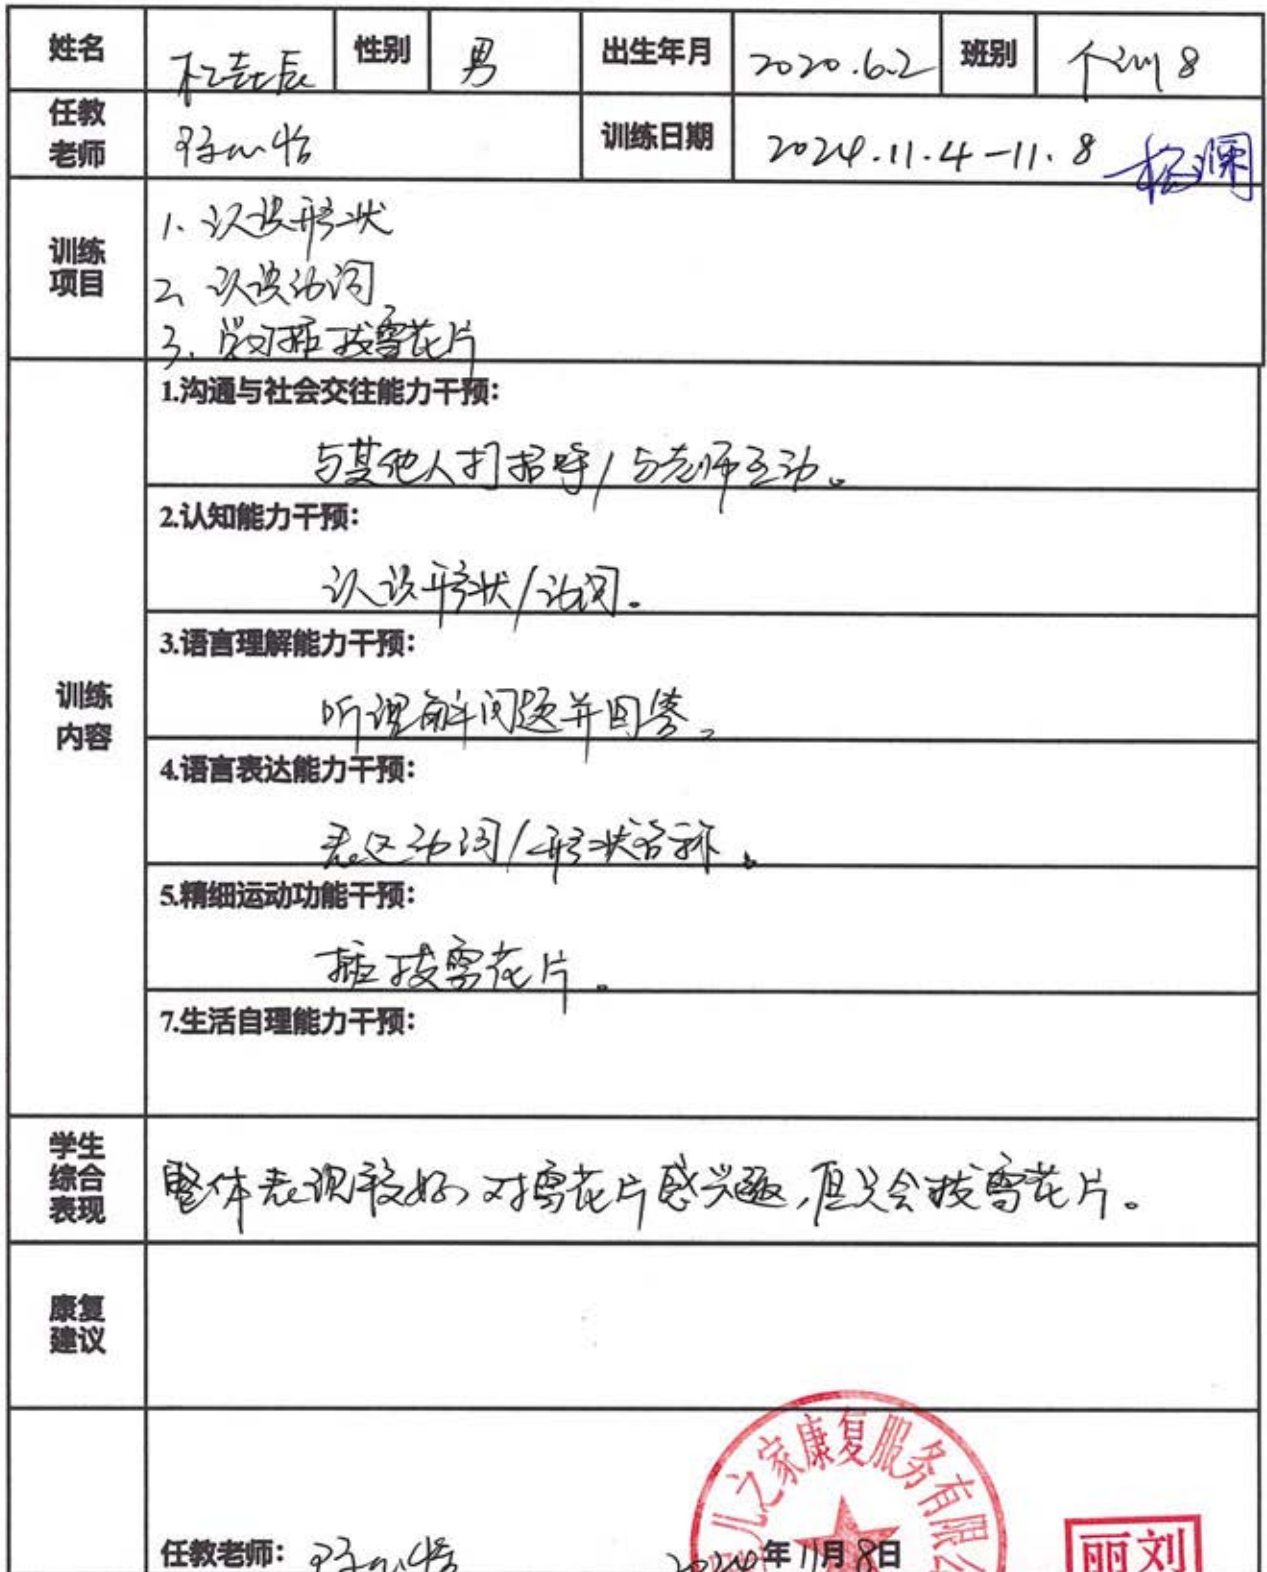 姓名 性别 男 出生年月 2020.6.2 班别 个训8
任教老师 训练日期 2024.11.4-11.8
训练项目
1、认识形状
2、认识动词
3、学习插拔雪花片
训练内容
1.沟通与社会交往能力干预：
与其他人打招呼/与老师互动。
2.认知能力干预：
认识形状/动词。
3.语言理解能力干预：
听理解问题并回答。
4.语言表达能力干预：
表达动词/形状名称。
5.精细运动功能干预：
插拔雪花片。
7.生活自理能力干预：
学生综合表现
整体表现较好，对雪花片感兴趣，但只会拔雪花片。
康复建议
儿之家康复服务有限公
任教老师： 2024年11月8日
丽刘